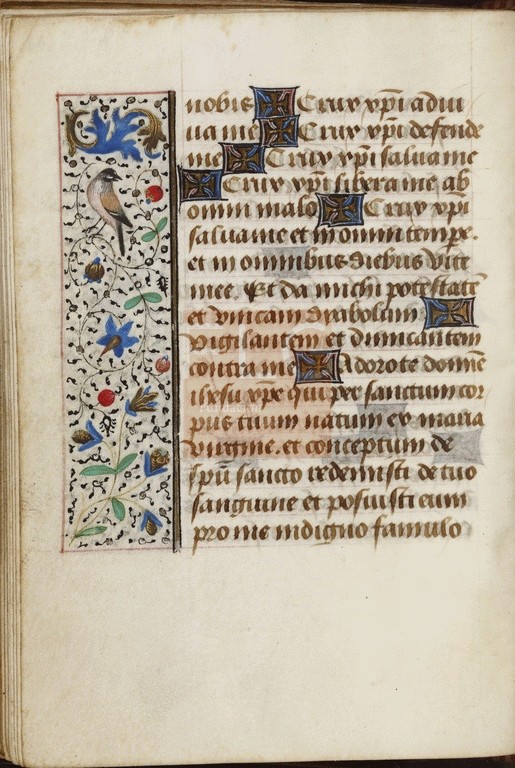 nobis ✠ Crux xpi adiu
ua me ✠ Crux xpi defende
me ✠ Crux xpi salua me
✠ Crux xpi libera me ab
omni malo ✠ Crux xpi
salua me et in omni tempe.
et in omnibus diebus vite
mee. Et da michi potestatē
et vincam dyabolum ✠
vigilantem et dimicantem
contra me ✠ Adoro te domīe
ihesu xpe qui per sanctum cor
pus tuum natum ex maria
virgine. et conceptum de
spū sancto redemisti de tuo
sanguine et posuisti eum
pro me indigno famulo